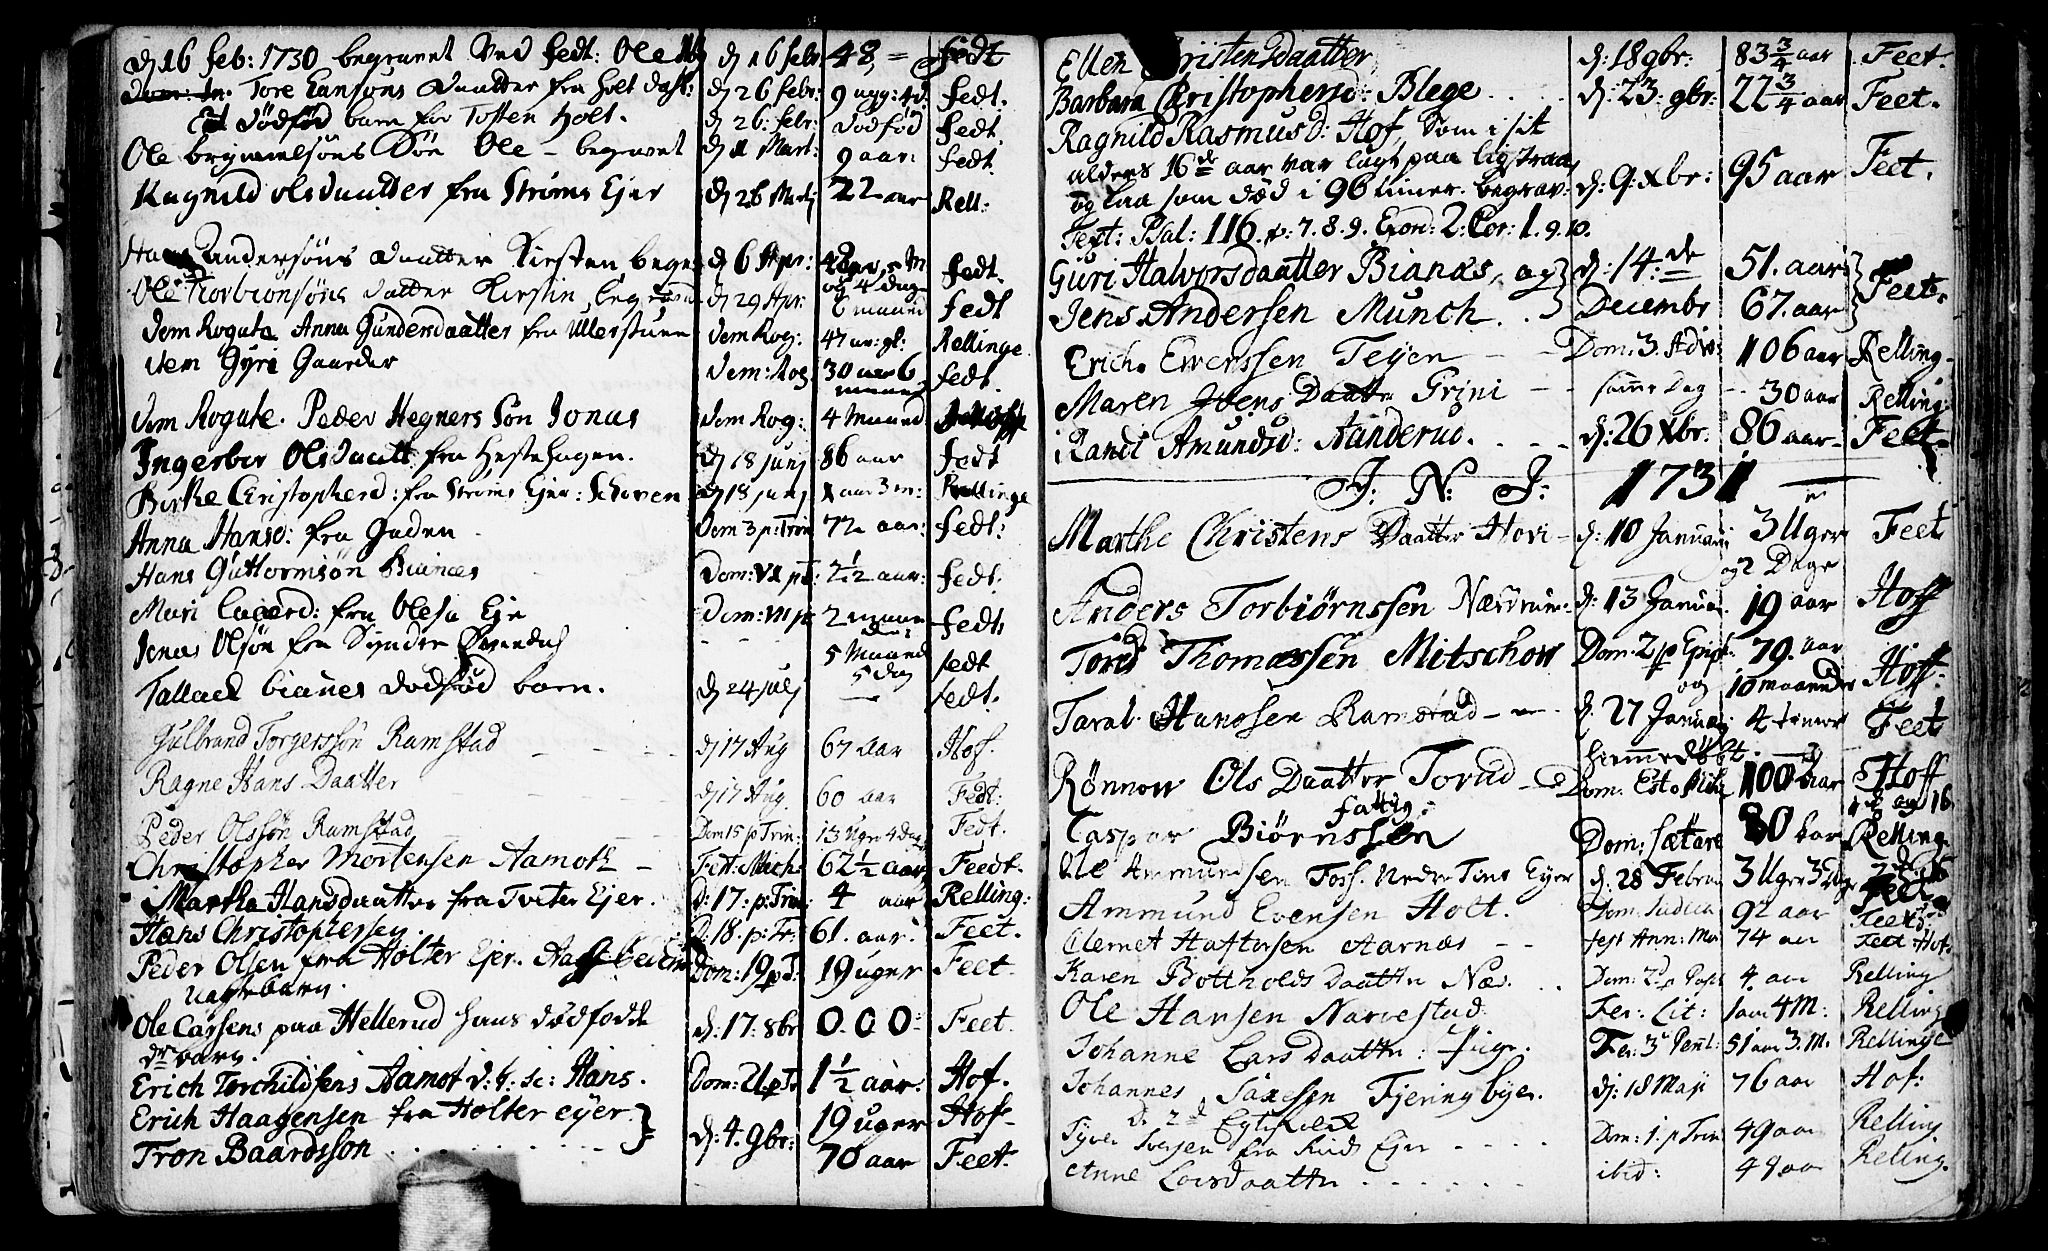 dj 16 feb: 1730 begravet Ved fedt: Ole dj 16 febr 48 = fedt
Tore Eansöns daatter fra Holt dj 26 febr: 9 ugg: 4 d. fedt.
Et dödföd barn for Toften Holt. dj 26: febr: dödföd fedt
Ole brynnelsöns Sön Ole – begravet dj 1 Mart: 9 aar: fedt.
Ragnild olsdaatter fra Ströms Ejer dj 26 Martj 22 aar Rell:
Hans Andersöns daatter Kirsten, dj 6 Apr: og 4 dage fedt.
Ole Torbionsöns datter Kirstin, dj 29 Apr: 6 maaned fedt
dom Rogate Anna Gundersdaatter fra Ullerstuen dom Rog: 47 aar Rellinge
dem Gyri Gaarder dem: Rog 30 aar 6 fedt.
dom Rogate. Peder Hegners Sön Jonas dom Rog: 4 Maaned
Ingerbor Olsdaatt: fra Hestehagen. dj 18 junj 86 aar fedt
Birthe Christopherd: fra Ströms Ejer: Schoven dj 18 junj 1 aar 3 m: Rellinge
Anna Hansd: fra Gaden dom 3 p: Trin 72 aar: fedt:
Hans Guttormsön Bianæs Dom: VI pT: 2½ aar: fedt.
Mari fra Olsa Eje Dom: VII p 2 fedt:
Jonas Olsön fra Syndre 5 Maaned 5 dag fedt
Tallach bianes dodföd barn. dj 24 julj — fedt.
Gulbrand Torgerssön Ramstad dj 17 Aug 67 aar Hof.
Ragne Hans Daatter dj 17 Aug. 60 aar Fedt:
Peder Olssön Ramstad Dom 15 p Trin: 13 Uger 4 dag Fedt.
Christopher Mortensen Aamoth – Fest: Mich: 62½ aar Feedt.
Martha Hansdaatter fra Tveter Ejer. D: 17: p: Trin: 4 aar Relling:
Hans Christophersen. D: 18. p: Tr: 61. aar. Feet.
Peder Olsen fra Holter Ejer. Dom: 19 p T: 19 uger Feet.
Ole Carsens paa Hellerud hans dödfödde d: 17: 8br 0. 0 0: Feet.
barn.
Erich Torchildsens Aamot d: y: sc: Hans. Dom: 21. p Tr 1½ aar: Hof.
Erich Haagensen fra Holter eyer. } d: 4. 9br: 19 uger Hof
Tron Baardsson 70 aar Feet.
Ellen Cristensdaatter d: 18 9br: 83¾ aar Feet.
Barbara Christophersd: Blege d: 23: 9br: 22¾ aar Feet.
Ragnild Rasmusd: Hof, Som i sit
alders 16de aar var lagt paa Lig Straa,
og laa som död i 96 timer. begrav: d: 9: Xbr: 95 aar Feet.
Text: Psal: 116. p: 7. 8. 9. Exord: 2. Cor: 1. 9. 10.
Guri Halvorsdaatter Bianæs, og } d: 14: de 51. aar } Feet.
Jens Andersen Munch. Decembr 67. aar
Erich Evenssen Teyen – – Dom. 3. Adv: 106 aar Relling.
Maren Daattr Grini – – samme Dag – 30 aar Relling:
Randi Amundsd: Aanderud. d: 26 Xbr: 86 aar Feet.
J: N: J: 1731
Marthe Christens Daatter Hovi – d: 10 Januarij 3 Uger Feet
og 2 Dage
Anders Torbiörnssen d: 13 Januar: 19 aar Hoff
Tord Thomæssen Mitschow Dom: 2 p Epiph 79. aar Hoff.
og 10 maaneder
Taral Hanssen Ramstad d: 27 Januarij 4 Feet
hiemmedöbt.
Rönnow Ols Daatter Torud Dom: Esto Mihi 100 aar Hoff
Caspar Biörnssen fattig: Dom: 80 aar Relling
Ole Ammundsen Foss. Nedre Ejer d: 28 Februar 3 Uger 3 Dage Feet
Ammund Evensen Holt. Dom: Judica 92 aar Feet
Clemet Haftorsen Aarnæs – – fest Ann: Mar 74 aar Feet
Karen Bottholds Daatter Næs. Dom: 2 p Pasc 4 aar Relling
Ole Hansen Narvestad Fer: Lit: 1 aar 4 M: Relling
Johanne Lars Daatter: Fer: 3 Pent: 51 aar 3. M. Relling
Johannes Saxesen Fjeringbyer. dj: 18 Maji 76 aar Hof:
D. 2d
Iversen fra Ruds Ejer Dom: 1. p Trin 49 aar Relling
Anne Larsdaatter ibid: 49 aar Reling.